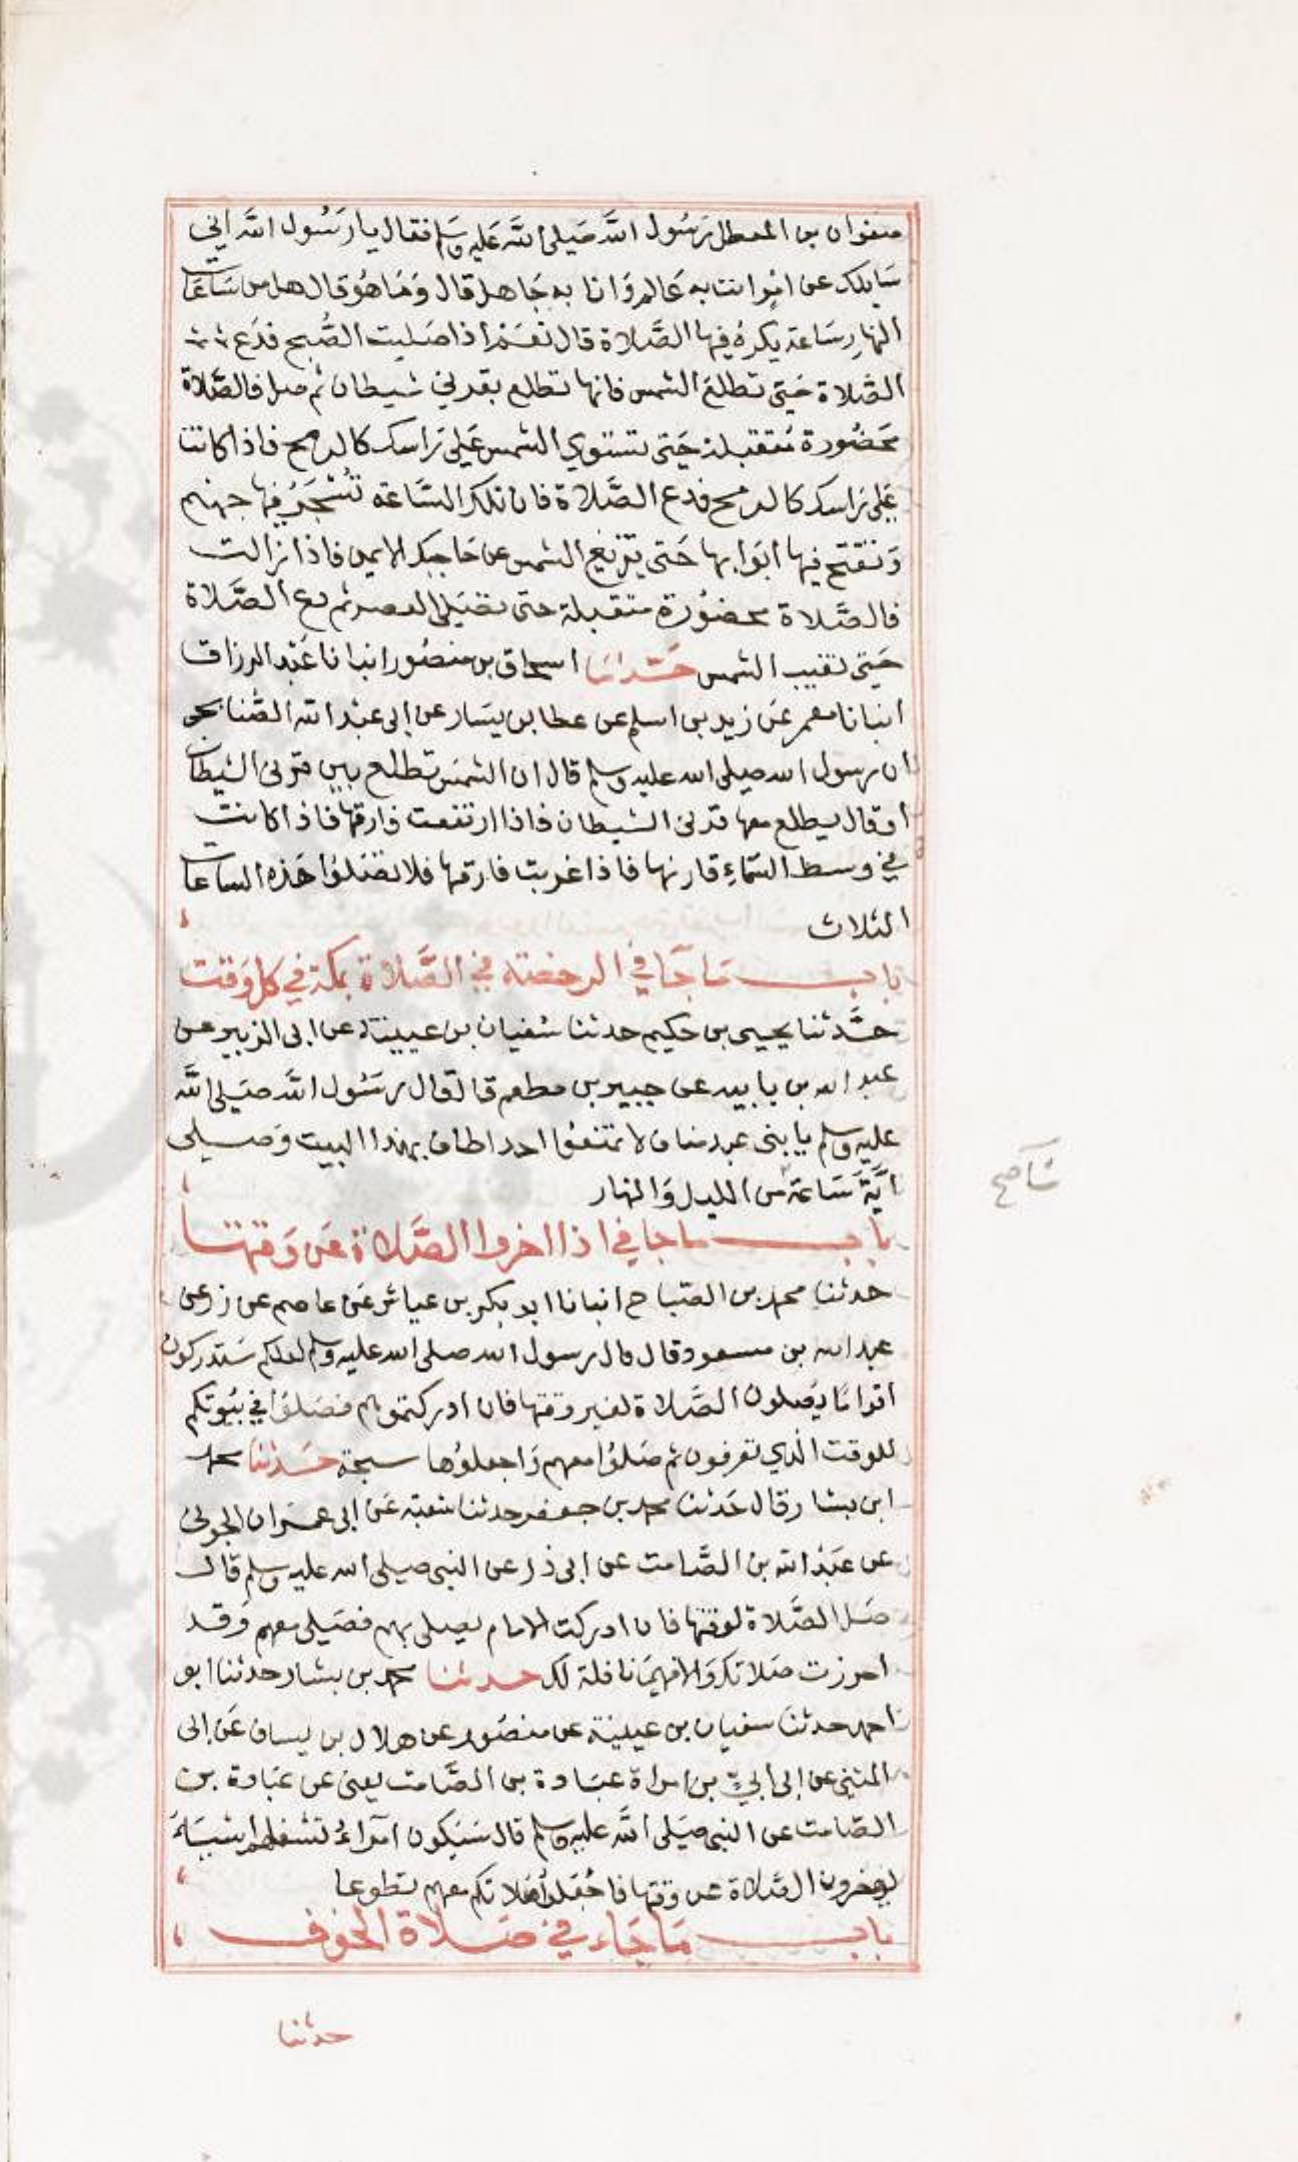 صفوان بن المعطل رسول الله صلى الله عليه وسلم فقال يا رسول الله اني
سايلك عن امر انت به عالم وانا به جاهل قال وما هو قال هل من ساعات
النهار ساعة يكره فيها الصلاة قال نعم اذا صليت الصبح فدع
الصلاة حتى تطلع الشمس فانها تطلع بقرني شيطان ثم صل فالصلاة
محضورة متقبلة حتى تستوي الشمس على راسك كالرمح فاذا كانت
على راسك كالرمح فدع الصلاة فان تلك الساعة تسجر فيها جهنم
وتفتح فيها ابوابها حتى تزيغ الشمس عن حاجبك الايمن فاذا زالت
فالصلاة محضورة متقبلة حتى تصلي العصر ثم دع الصلاة
حتى تغيب الشمس حدثنا اسحاق بن منصور انبانا عبد الرزاق
انبانا معمر عن زيد بن اسلم عن عطا بن يسار عن ابى عبد الله الصنابحى
ان رسول الله صلى الله عليه وسلم قال ان الشمس تطلع بين قرنى الشيطان
او قال يطلع معها قرنى الشيطان فاذا ارتفعت فارقها فاذا كانت
في وسط السماء قارنها فاذا غربت فارقها فلا تصلوا هذه الساعات
الثلاث
باب ما جآ في الرخصة في الصلاة بمكة في كل وقت
حدثنا يحيى بن حكيم حدثنا سفيان بن عيينة عن ابى الزبير عن
عبد الله بن بابيه عن جبير بن مطعم قال قال رسول الله صلى الله
عليه وسلم يا بنى عبد مناف لا تمنعوا احدا طاف بهذا البيت وصلى
اية ساعة من الليل والنهار
شآ صح
باب ما جا في اذا اخروا الصلاة عن وقتها
حدثنا محمد بن الصباح انبانا ابو بكر بن عياش عن عاصم عن زر عن
عبد الله بن مسعود قال قال رسول الله صلى الله عليه وسلم لعلكم ستدركون
اقواما يصلون الصلاة لغير وقتها فان ادركتموهم فصلوا في بيوتكم
للوقت الذي تعرفون ثم صلوا معهم واجعلوها سبحة حدثنا محمد
ابن بشار قال حدثنا محمد بن جعفر حدثنا شعبة عن ابى عمران الجونى
عن عبد الله بن الصامت عن ابى ذر عن النبى صلى الله عليه وسلم قال
صل الصلاة لوقتها فان ادركت الامام يصلى بهم فصلى معهم وقد
احرزت صلاتك والا فهي نافلة لك حدثنا محمد بن بشار حدثنا ابو
احمد حدثنا سفيان بن عيينة عن منصور عن هلال بن يساف عن ابى
المثنى عن ابى ابي بن امراة عبادة بن الصامت يعنى عن عبادة بن
الصامت عن النبى صلى الله عليه وسلم قال سيكون امرآء تشغلهم اشياء
يوخرون الصلاة عن وقتها فاجعلوا صلاتكم معهم تطوعا
باب ما جاء في صلاة الخوف
حدثنا